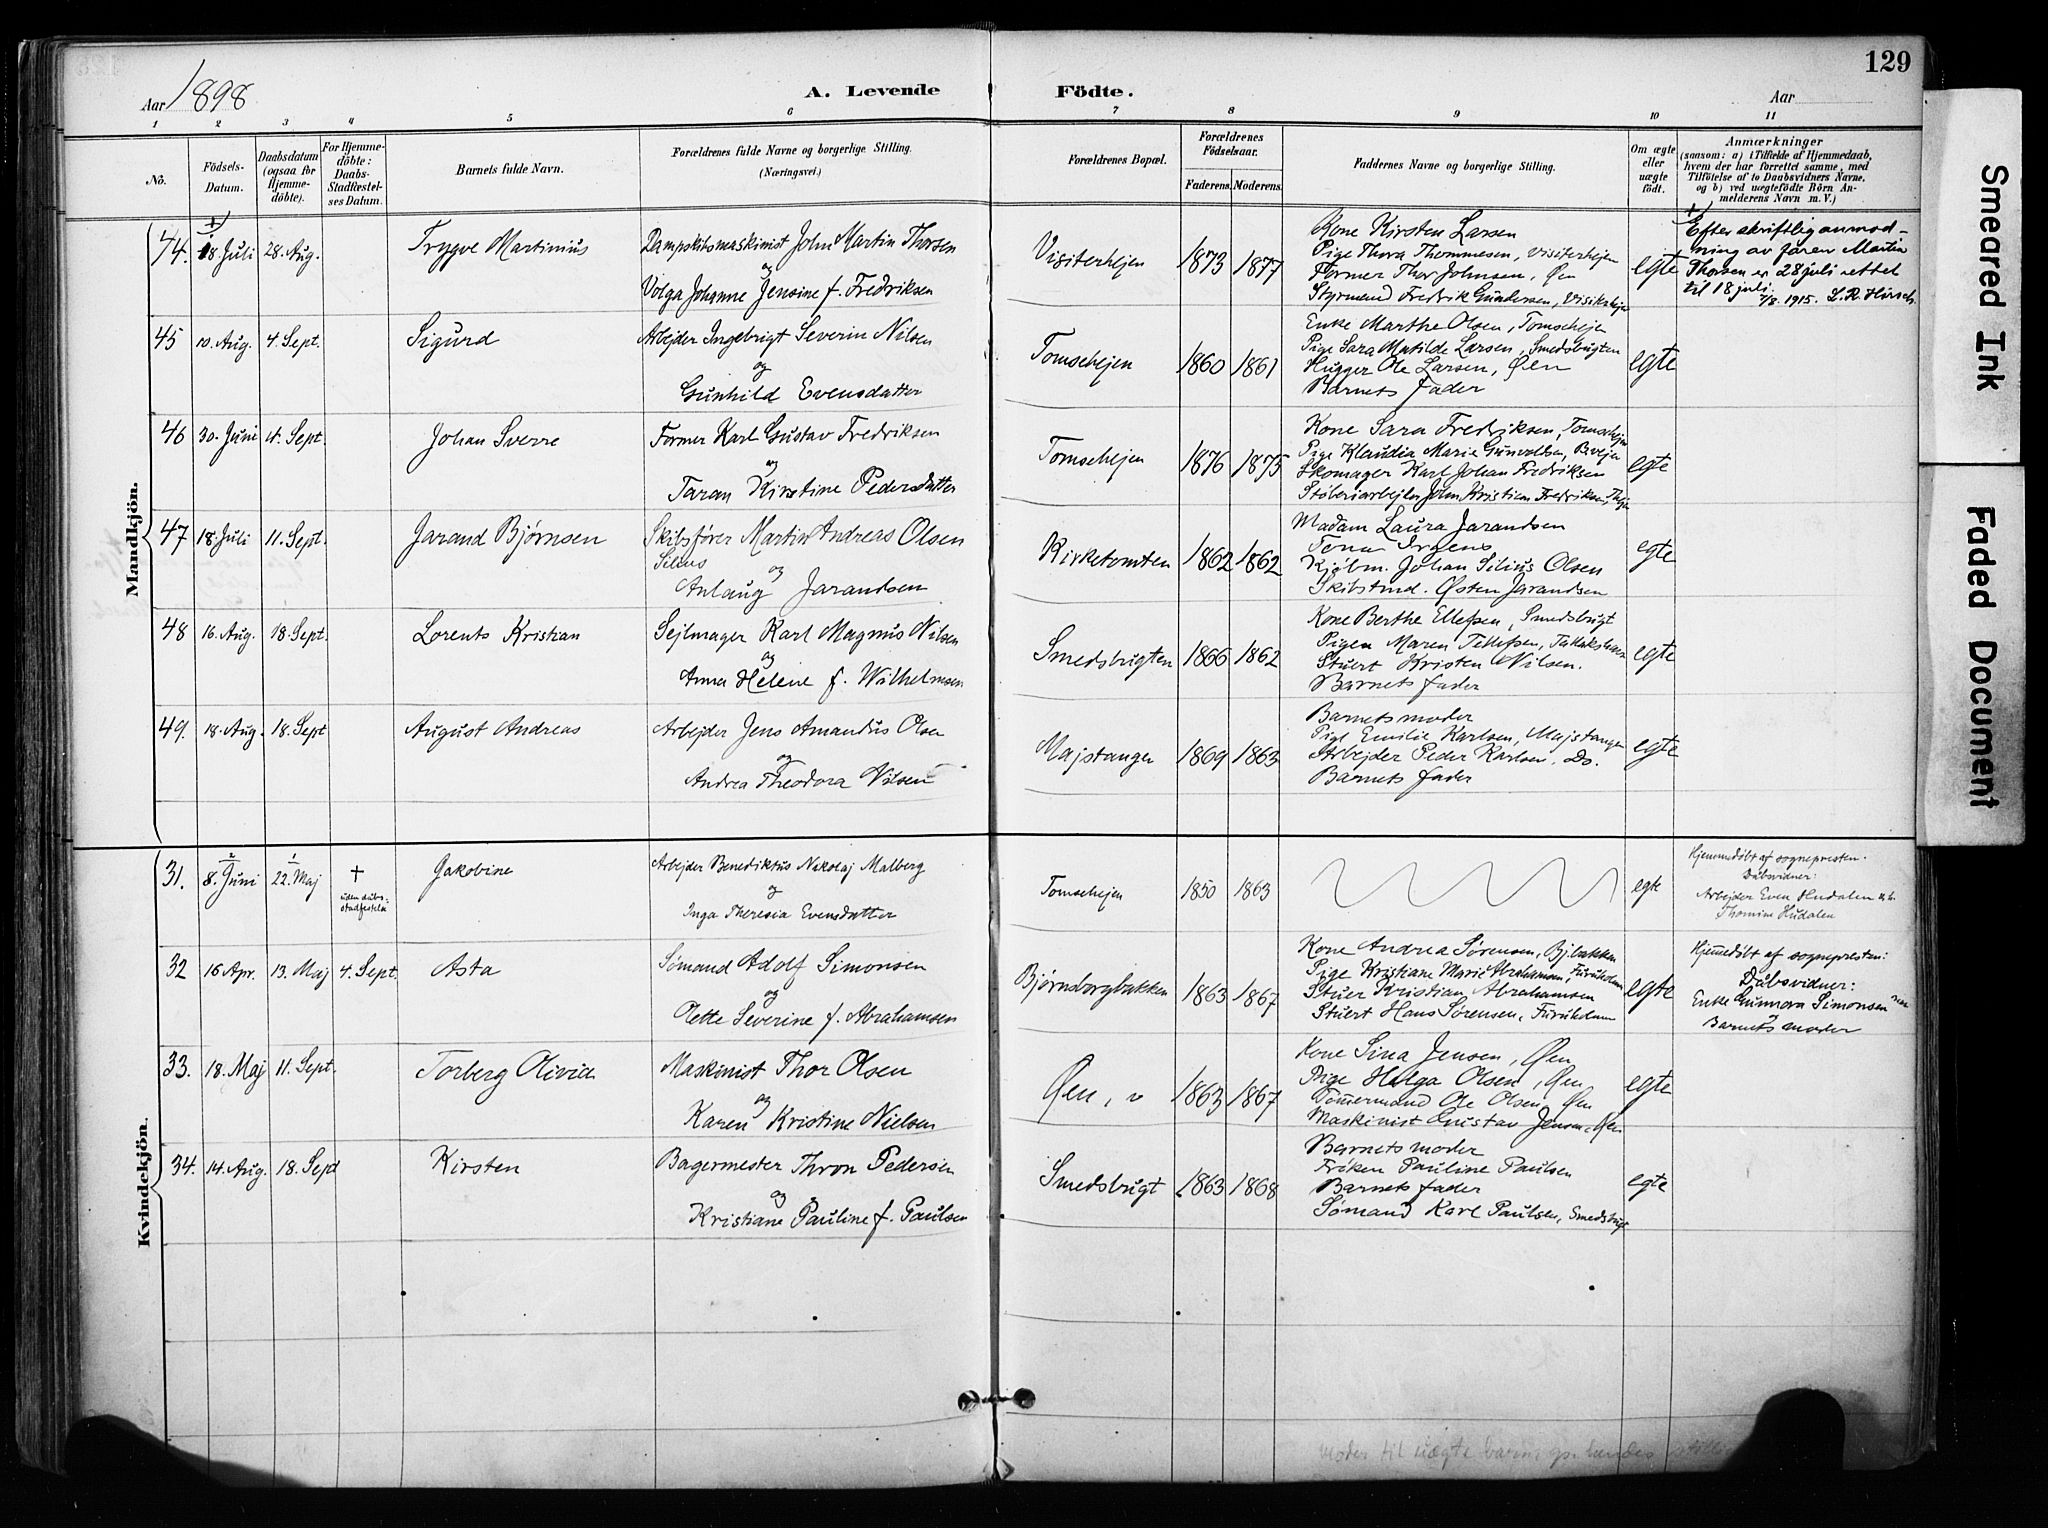 129
Aar 1898
A. Levende Födte.
Aar
1 2 3 4 5 6 7 8 9 10 11
No.
Födsels-Datum.
Daabsdatum (ogsaa for Hjemme-döbte).
For Hjemme-döbte: Daabs-Stadfæstel-ses Datum.
Barnets fulde Navn.
Forældrenes fulde Navne og borgerlige Stilling.
(Næringsvei.)
Forældrenes Bopæl.
Forældrenes Födselsaar.
Faderens. Moderens.
Faddernes Navne og borgerlige Stilling.
Om ægte eller uægte födt.
Anmærkninger
(saasom: a) i Tilfælde af Hjemmedaab,
hvem der har forrettet samme, med
Tilföielse af to Daabsvidners Navne,
og b) ved uegtefödte Börn An-
melderens Navn m. V.)
Mandkjön.
44. 18 Juli 28. Aug. Trygve Martinius
Dampskibsmaskinist John Martin Thorsen
og
Volga Johanne Jensine f. Fredriksen
Visiterhejen 1873 1877
Kone Kirsten Larsen
Pige Thora Thommesen, Visiterhejen
Former Thor Johnsen, Øen
Styrmand Fredrik Gundersen, Visiterhejen
egte
Efter skriftlig anmod-
ning av faren Martin
Thorsen er 28 juli rettet
til 18 juli.
1915. L.R.
45 10. Aug. 4. Sept. Sigurd
Arbejder Ingebrigt Severin Nilsen
og
Gunhild Evensdatter
Tomsehejen 1860 1861
Enke Marthe Olsen, Tomsehejen
Pige Sara Matilde Larsen, Smedsbugten
Hugger Ole Larsen, Øen
Barnets fader
egte
46 30. Juni 4. Sept. Johan Sverre
Former Karl Gustav Fredriksen
og
Taran Kirstine Pedersdatter
Tomsehejen 1876 1875
Kone Sara Fredriksen, Tomsehejen
Pige Klaudia Marie
Skomager Karl Johan Fredriksen
Støberiarbejder John Kristian Fredriksen,
egte
47 18. Juli 11. Sept. Jarand Bjørnsen
Skibsfører Martin Andreas Olsen
Silius
og
Anlaug Jarandsen
Kirketomten 1862 1862
Madam Laura Jarandsen
Irgens
Kjøbm. Johan Silius Olsen
Skibstmd. Østen Jarandsen
egte
48 16. Aug. 18. Sept. Lorents Kristian
Sejlmager Karl Magnus Nilsen
og
Anna Helene f. Wilhelmsen
Smedsbugten 1866 1862
Kone Berthe Ellefsen, Smedsbugt
Pigen Maren Tellefsen,
Stuert Kristen Nilsen.
Barnets fader
egte
49. 18. Aug. 18. Sept August Andreas
Arbejder Jens Amandus Olsen
og
Andrea Theodora Nilsen
Majstangen 1869 1863
Barnets moder
Pige Emilie Karlsen, Majstangen
Arbejder Peder Karlsen, Do.
Barnets fader
egte
Kvindekjön.
31. 8. Juni 22. Maj † uden dåbs-stadfestelse Jakobine
Arbejder Benediktus Nikolaj Malberg
og
Inga Theresia Evensdatter
Tomsehejen 1850 1863
egte
Hjemmedøbt af sognepresten.
Dåbsvidner:
Arbejder Even Hudalen
Thomine Hudalen
32 16 Apr. 13. Maj 4. Sept. Asta
Sømand Adolf Simonsen
og
Olette Severine f. Abrahamsen
Bjørnsborgbakken 1863 1867
Kone Andrea Sørensen, Bj.bakken
Pige Kristiane Marie Abrahamsen, Furuholmen
Stuer Kristian Abrahamsen
Stuert Hans Sørensen, Furuholmen
egte
Hjemmedøbt af sognepresten:
Dåbsvidner:
Enke Gunnora Simonsen
Barnets moder
33. 18. Maj 11. Sept. Torberg Olivia
Maskinist Thor Olsen
og
Karen Kristine Nielsen
Øen, v 1863 1867
Kone Sina Jensen, Øen
Pige Helga Olsen, Øen
Tømmermand Ole Olsen, Øen
Maskinist Gustav Jensen, Øen
egte
34. 14. Aug. 18. Sept Kirsten
Bagermester Thron Pedersen
og
Kristiane Pauline f. Paulsen
Smedsbugt 1863 1868
Barnets moder
Frøken Pauline Paulsen
Barnets fader
Sømand Karl Paulsen, Smedsbugt
egte
moder til uægte barn
Smeared Ink
Faded Document